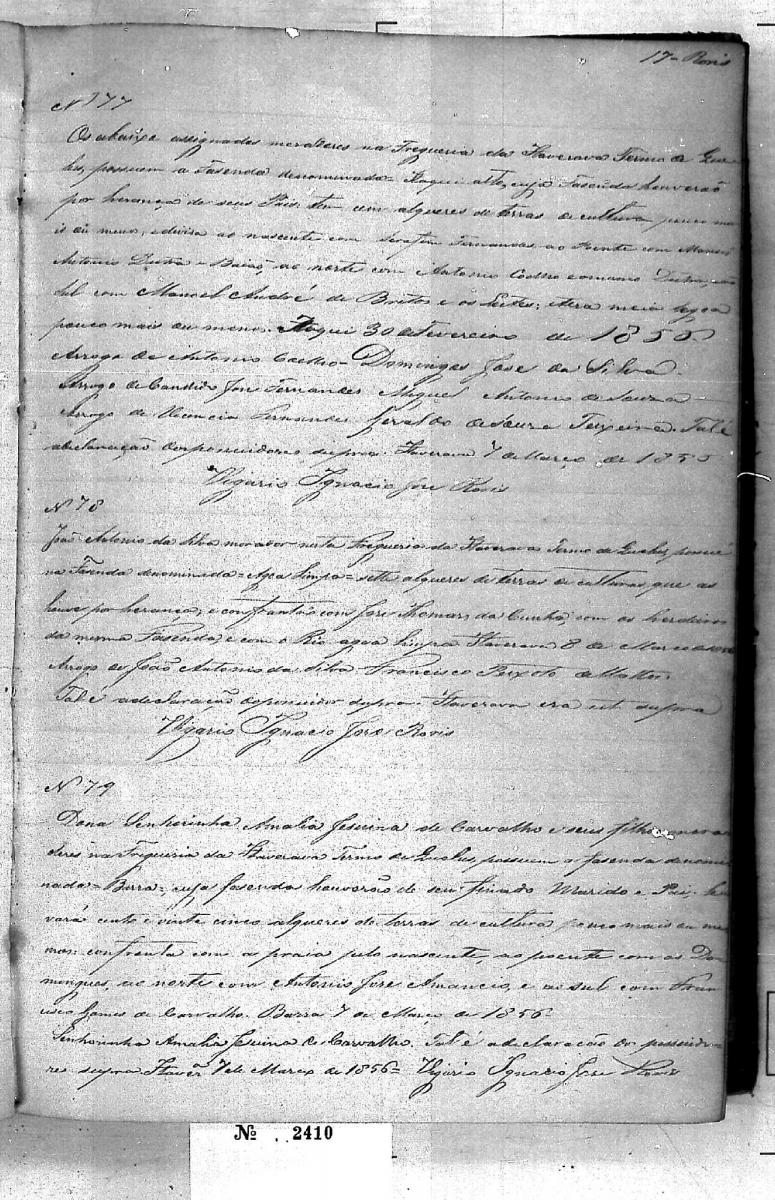 17- Rovis
N 177
Os abaixo assignados moradores na Freguezia da Itaverava Termo de Que-
lus, possuem a Fasenda denominada= Itaqui alto, cuja Fasenda houverão
por herança de seus Pais. tem cem alqueres de terras de cultura pouco ma-
is ou meno, e divisa ao nascente com Serafim Fernandes ao Poente com Manoel
Antonio Dutra= Baixo, ao norte com Antonio Coelho e
Sul com Manoel André de Brito e os Leites; terá meia legoa
pouco mais ou meno. Itaqui 30 de Fevereiro de 1855
Arrogo de Antonio Coelho= Domingos Jose da Silva.
Arrogo de Candido Jose Fernandes Miguel Antonio de Souza=
Arrogo de Vicencia Fernandes Geraldo de Souza Teixeira. Tal é
a declaração dos possuidores supra. Itaverava 7 de Março de 1855
Vigario Ignacio Jose Rovis
N 78
João Antonio da Silva morador nesta Freguezia da Itaverava Termo de Quelus, possue
na Fasenda denominada= Agoa Limpa= sette alqueres de terras de culturas que as
houve por herança, e confrontão com Jose Thomas da Cunha, com os herdeiros
da mesma Fasenda, e com o Rio agoa limpa Itaverava 8 de Março de
Arrogo de João Antonio da Silva Francisco Peixoto de Mattos.
Tal é a declaração do possuidor supra. Itaverava era ut supra
Vigario Ignacio Jose Rovis
N 79
Dona Senhorinha Amalia Jesuina de Carvalho e seus filhos mora-
dores na Freguezia da Itaverava Termo de Quelus, possuem a fasenda denomi-
nada= Barra=, cuja fasenda houverão de seu finado Marido e Pai. le-
vará cento e vinte cinco alqueres de terras de cultura pouco mais ou me-
nos, confronta com a praia pelo nascente, ao poente com os Do-
mingues, ao norte com Antonio Jose Amancio, e ao sul com Fran-
cisco Gomes de Carvalho. Barra 7 de Março de 1856
Senhorinha Amalia Jesuina de Carvalho. Tal é a declaração dos possuido-
res supra Itavera 7 de Março de 1856= Vigario Ignacio Jose Rovis
№ 2410